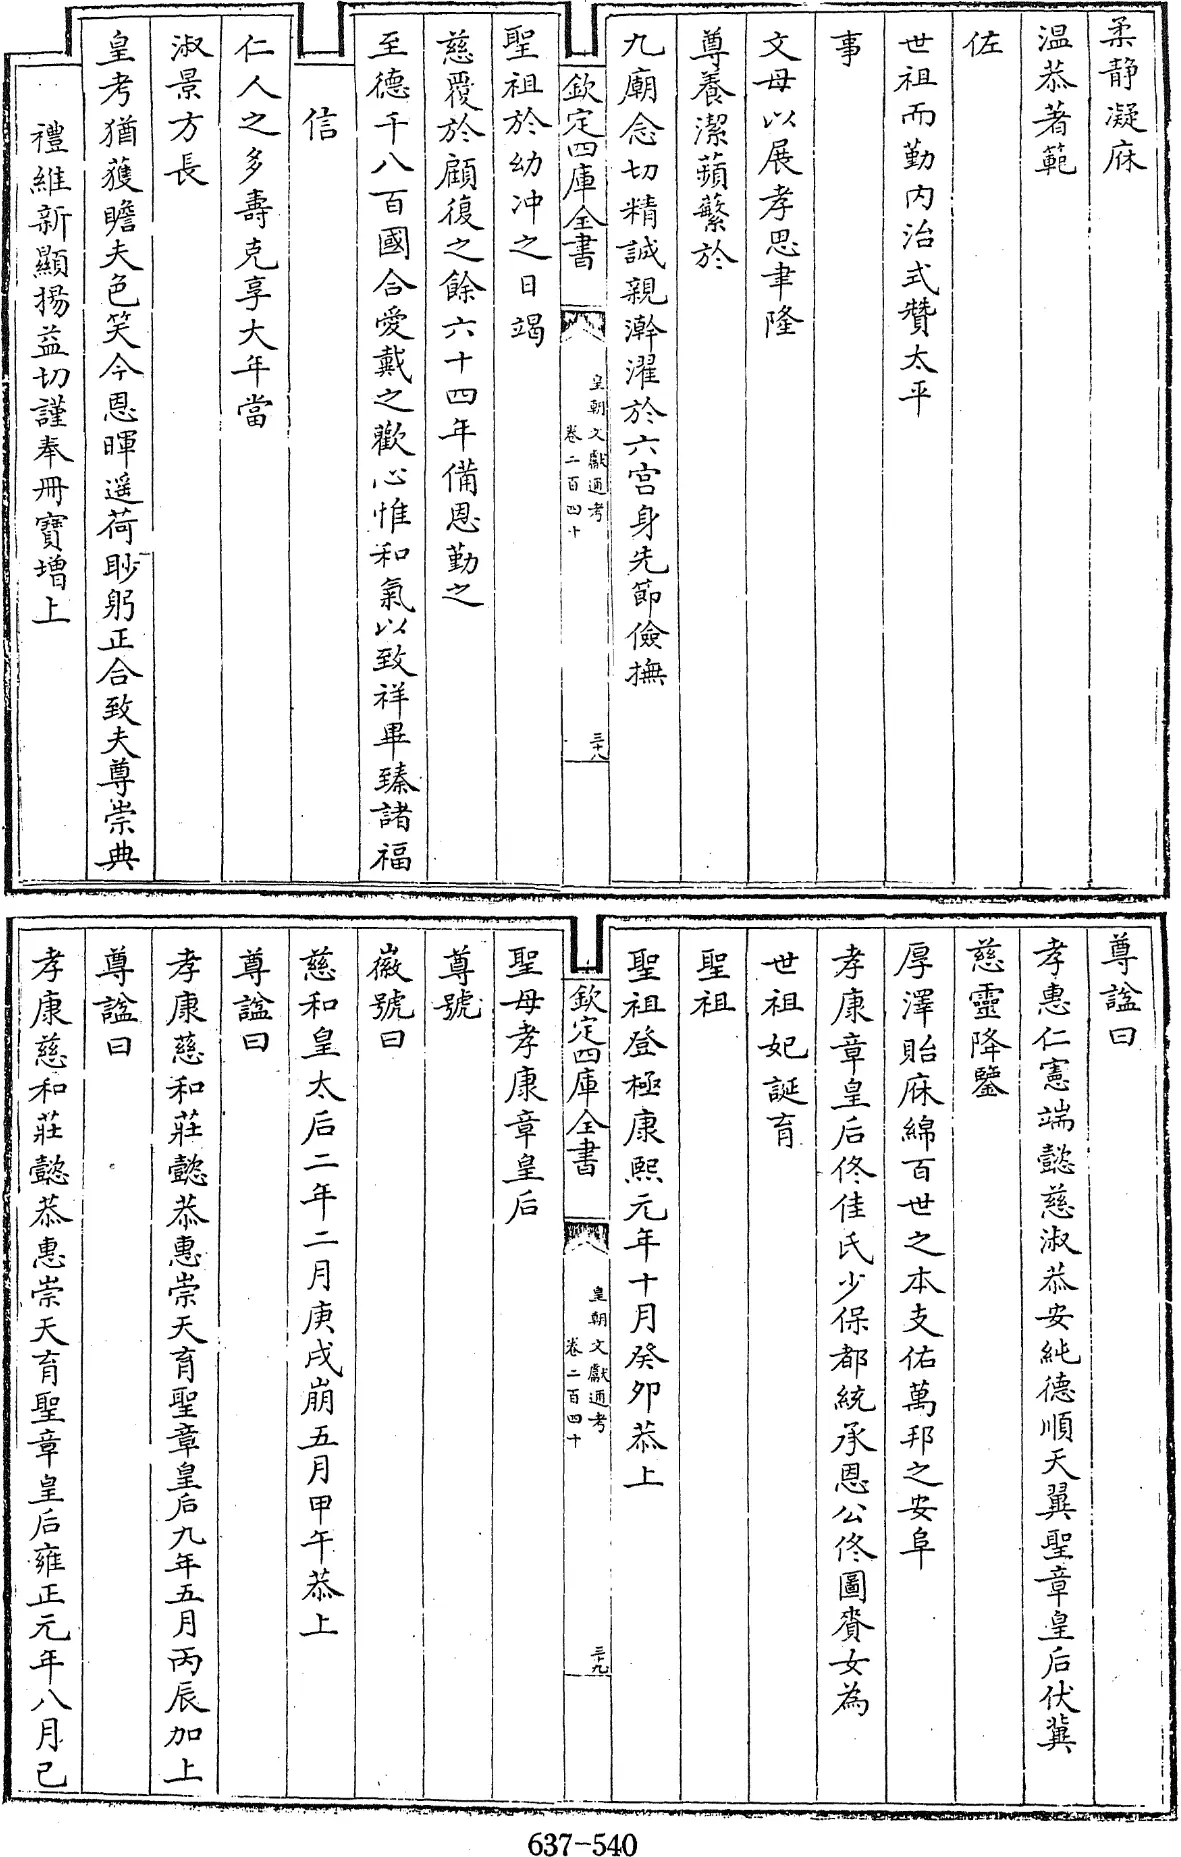 柔靜凝庥
温恭著範
佐
世祖而勤内治式贊太平
事
文母以展孝思聿隆
尊養潔蘋蘩於
九廟念切精誠親澣濯於六宫身先節儉撫
欽定四庫全書
皇朝文獻通考
卷二百四十
三十八
聖祖於幼冲之日竭
慈覆於顧復之餘六十四年備恩勤之
至德千八百國合愛戴之歡心惟和氣以致祥畢臻諸福
信
仁人之多壽克享大年當
淑景方長
皇考猶獲瞻夫色笑今恩暉遥荷眇躬正合致夫尊崇典
禮維新顯揚益切謹奉冊寶增上
尊諡曰
孝惠仁憲端懿慈淑恭安純德順天翼聖章皇后伏冀
慈靈降鑒
厚澤貽庥綿百世之本支佑萬邦之安阜
孝康章皇后佟佳氏少保都統承恩公佟圖賚女為
世祖妃誕育
聖祖
聖祖登極康熙元年十月癸卯恭上
欽定四庫全書
皇朝文獻通考
卷二百四十
三十九
聖母孝康章皇后
尊號
徽號曰
慈和皇太后二年二月庚戌崩五月甲午恭上
尊諡曰
孝康慈和莊懿恭惠崇天育聖章皇后九年五月丙辰加上
尊諡曰
孝康慈和莊懿恭惠崇天育聖章皇后雍正元年八月己
637-540